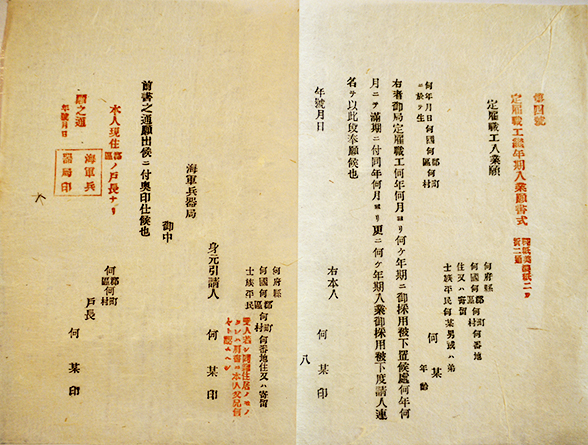 第四號
定雇職工繼年期入業願書式
定雇職工入業願
何府縣
何國何郡何町何番地
住又ハ寄留
士族平民何某男或ハ弟
何某
年齡
何年月日何國何郡何町
ニ於テ生
右者御局定雇職工何年何月ヨリ何ケ年期ニ御採用被下置候處何年何
月ニテ滿期ニ付同年何月ヨリ更ニ何ケ年期入業御採用被下度請人連
名ヲ以此段奉願候也
年號月日
右本人 何某印
八
何府縣
何國何郡何町何番地住又ハ寄留
士族平民
身元引請人 何某印
海軍兵器局
御中
前書之通願出候ニ付奧印仕候也
何郡何町
戸長 何某印
本人現住郡區ノ戸長ナリ
願之通
年號月日
海軍兵
器局印